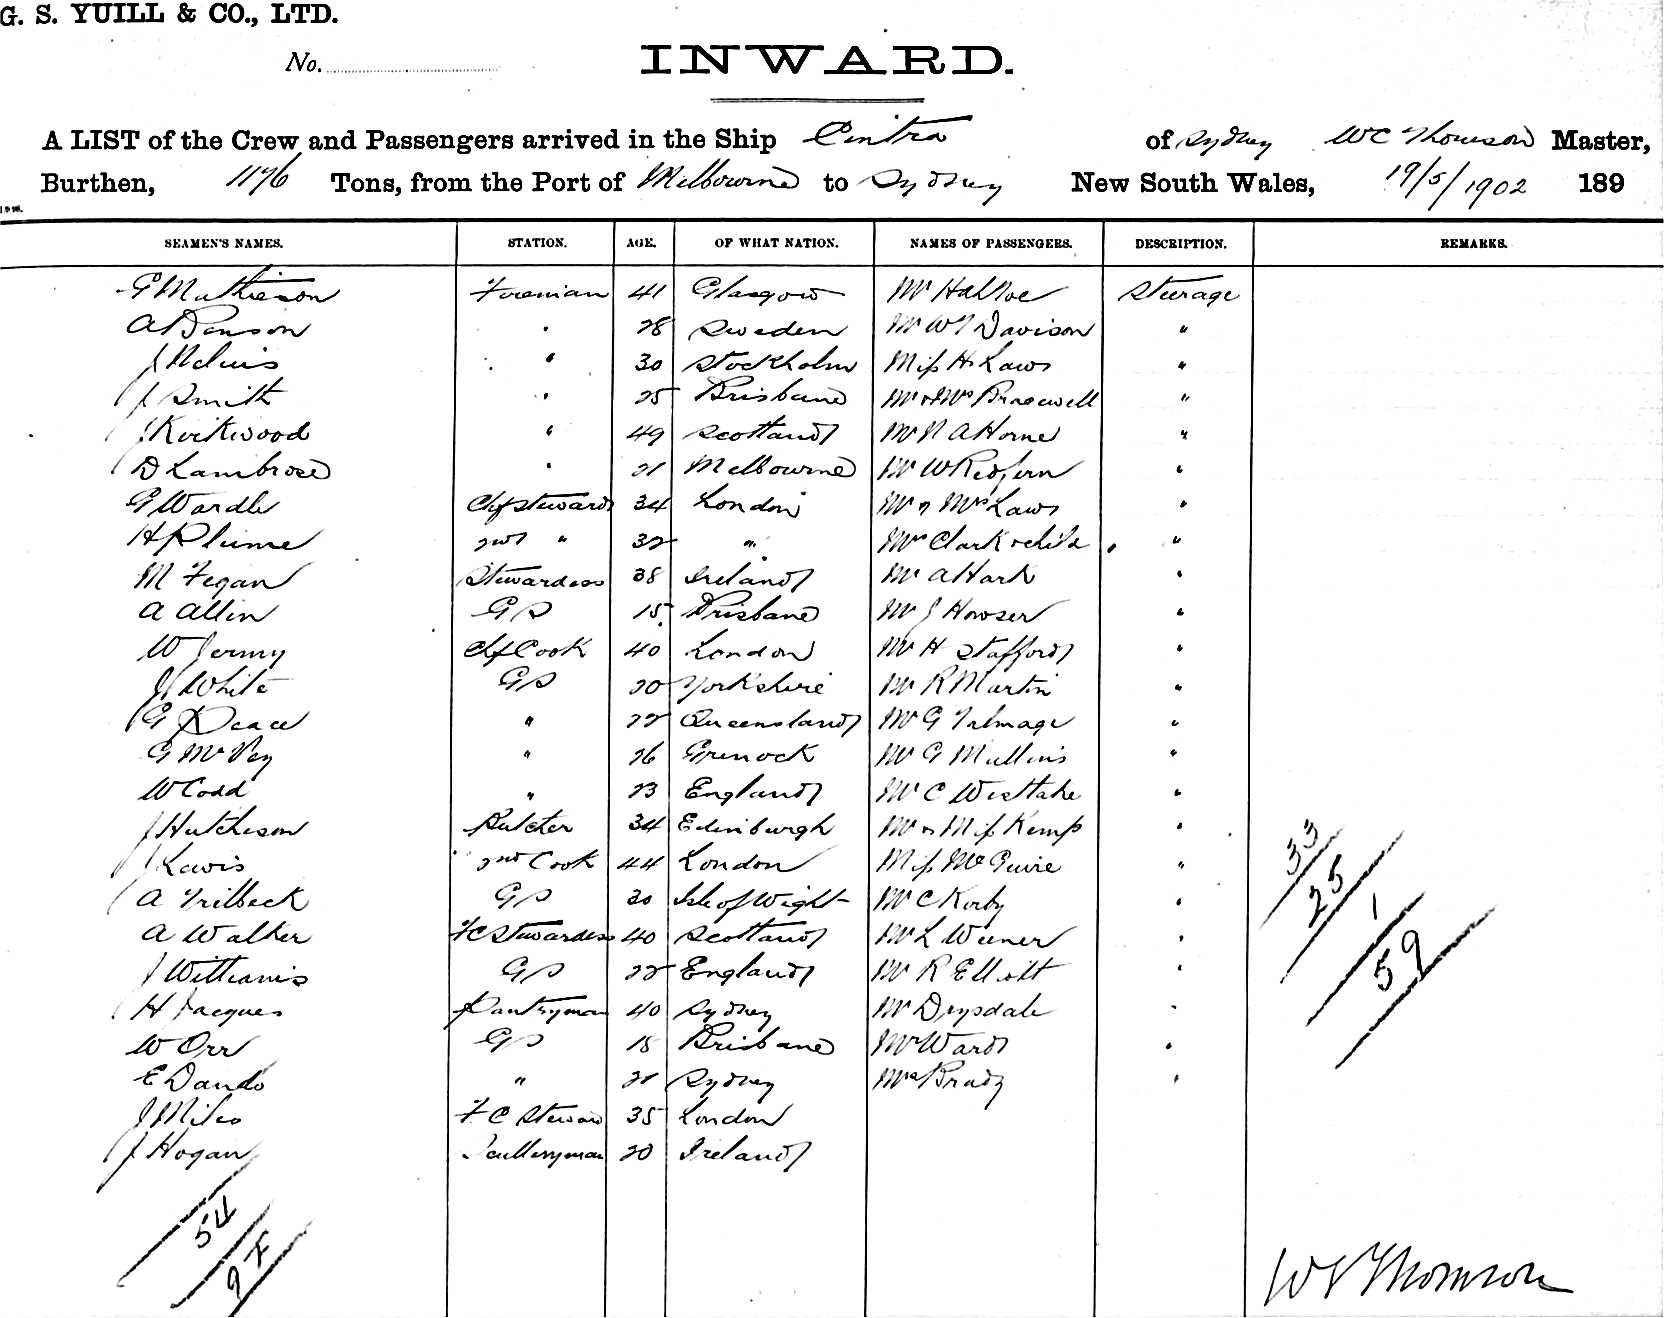 G. S. YUILL & CO., LTD.
No.
INWARD.
A LIST of the Crew and Passengers arrived in the Ship Cintra of Sydney WC Thomson Master,
Burthen, 1176 Tons, from the Port of Melbourne to Sydney New South Wales, 19/5/1902 189
SEAMEN'S NAMES. STATION. AGE. OF WHAT NATION. NAMES OF PASSENGERS. DESCRIPTION. REMARKS.
G Mathieson Foreman 41 Glasgow Mr Steerage
A Benson " 28 Sweden Mr Davison "
J " 30 Stockholm Miss H Laws "
J Smith " 25 Brisbane Mr & Mrs Bracewell "
J Kirkwood " 49 Scotland Mr A Horne "
D Lambrose " 21 Melbourne Mr W Redfern "
G Wardle Chf Steward 34 London Mr & Mrs Laws "
H Plume 2nd " 32 " Mrs Clark & child "
M Fegan Stewardess 38 Ireland Mr A Hark "
A Allin GS 15 Brisbane Mr J Howser "
W Jermy Chf Cook 40 London Mr H Stafford "
J White GS 20 Yorkshire Mr R Martin "
G Peace " 22 Queensland Mr G Talmage "
G McVey " 26 Grenock Mr G Mullins "
W Codd " 23 England Mr C Westlake "
J Hutcheson Butcher 34 Edinburgh Mr & Miss Kemp "
J Lewis 2nd Cook 44 London Miss McGuire "
A Trilbeck GS 20 Isle of Wight Mr C Kirby "
A Walker FC Stewardess 40 Scotland Mr L Weener "
J Williams GS 22 England Mr R Elliott "
H Jacques Pantryman 40 Sydney Mr Drysdale "
W Orr GS 18 Brisbane Mr Ward "
E Dando " 21 Sydney Mrs Brady "
J Miles FC Steward 35 London
J Hogan Sculleryman 20 Ireland
33
25
1
59
54
WC Thomson